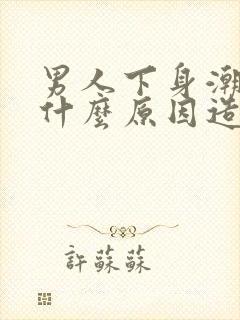 男人下身潮
什麼原因造
許蘇蘇